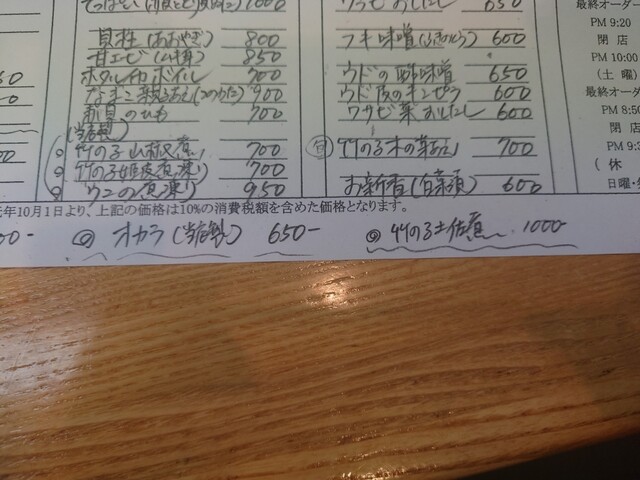 1000
貝柱(あおやぎ) 800
甘エビ 850
ホタルイカボイル 700
900
700
(当店製)
竹の子山椒煮 700
竹の子姫皮煮凍り 700
ウニの煮凍り 950
650
フキ味噌(ふきのとう) 600
ウドの酢味噌 650
ウド皮のキンピラ 600
ワサビ葉おしたし 600
旬 竹の子木の芽あえ 700
お新香(白菜漬) 600
最終オーダー
PM 9:20
閉店
PM 10:00
(土曜)
最終オーダー
PM 8:50
閉店
PM
(休
日曜・
元年10月1日より、上記の価格は10%の消費税額を含めた価格となります。
オカラ(当店製) 650-
竹の子土佐煮 1000-